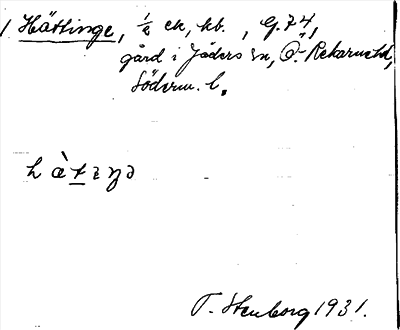 Hättinge, 1/2 ek, kb., G. 74,
gård i Jäders sn, Ö. Rekarne hd,
Söderm. l.
T. Stenborg 1931.